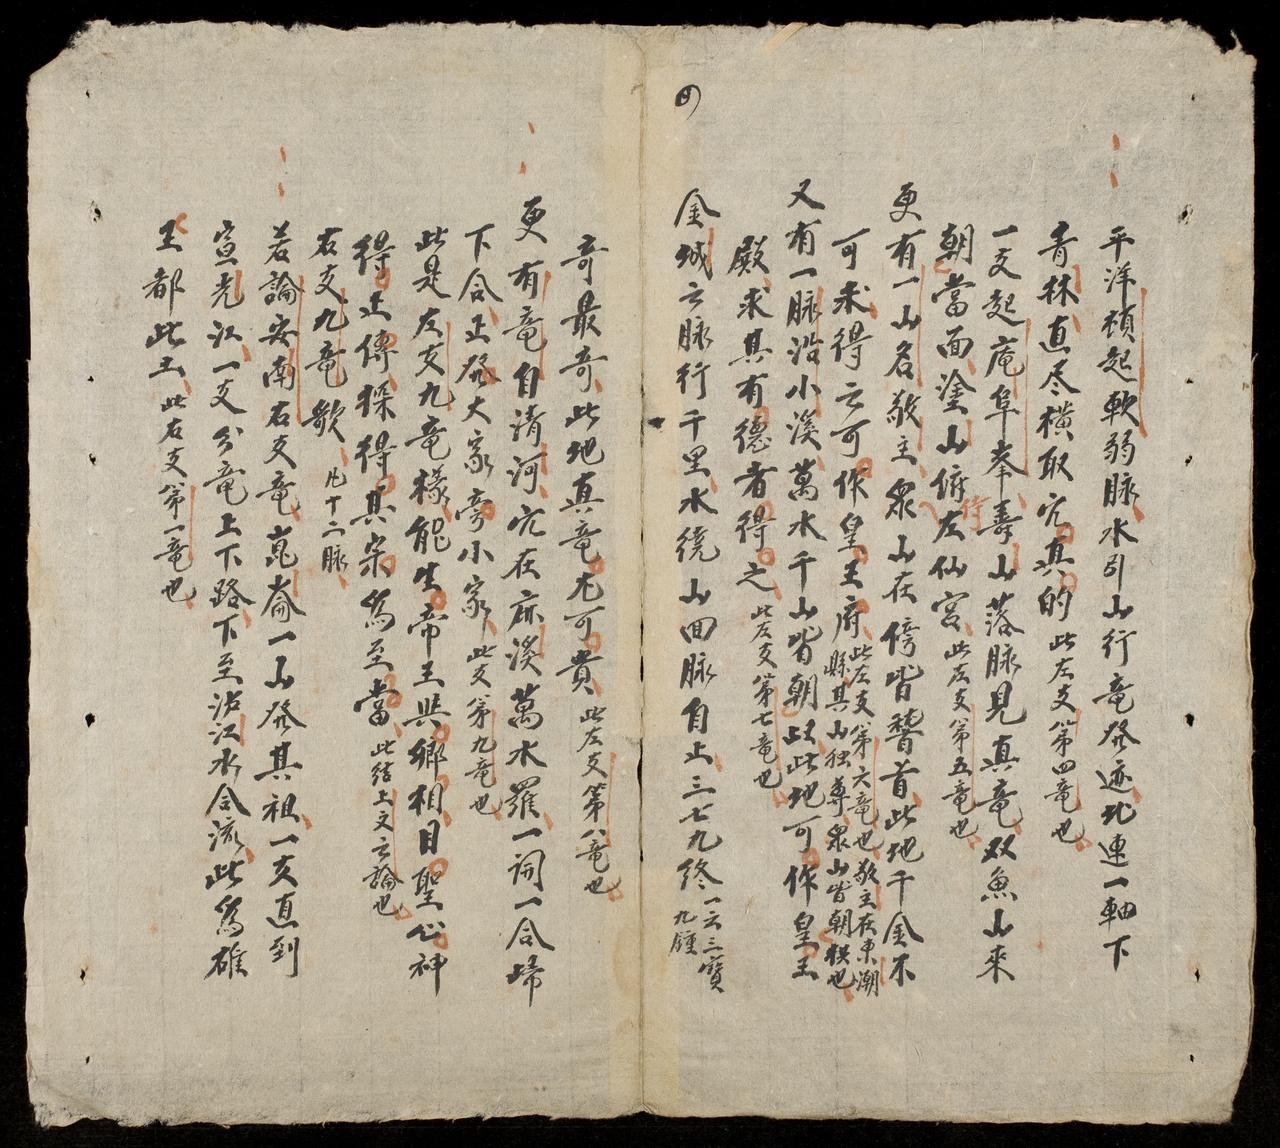 平洋頓起軟弱脉水引山行竜發迹北連一軸下
青林直尽橫取穴真的此左支第四竜也
一支起庵阜奉壽山落脉見真竜双魚山來
朝當面塗山俯左仙宮此左支第五竜也
侍
更有一山名敬主衆山在傍皆稽首此地千金不
可求得云可作皇王府此左支第六竜也敬主在東潮
縣其山独尊衆山皆朝拱也
又有一脉沿小溪萬水千山皆朝此地可作皇王
殿求其有德者得之此左支第七竜也
金城云脉行千里水繞山回脉自上三七九終一云三寶
九鍾
四
奇最奇此地真竜尤可貴此左支第八竜也
更有竜自清河穴在麻溪萬水羅一開一合歸
下合正發大家旁小家此支第九竜也
此是左支九竜樣能生帝王與鄉相目聖心神
得正傳探得其宗爲至當此結上文云論也
右支九竜歌凡十二脉
若論安南右支竜崑崙一山發其祖一支直到
宣光江一支分竜上下路下至泸江水合流此爲雄
王都此土此右支第一竜也